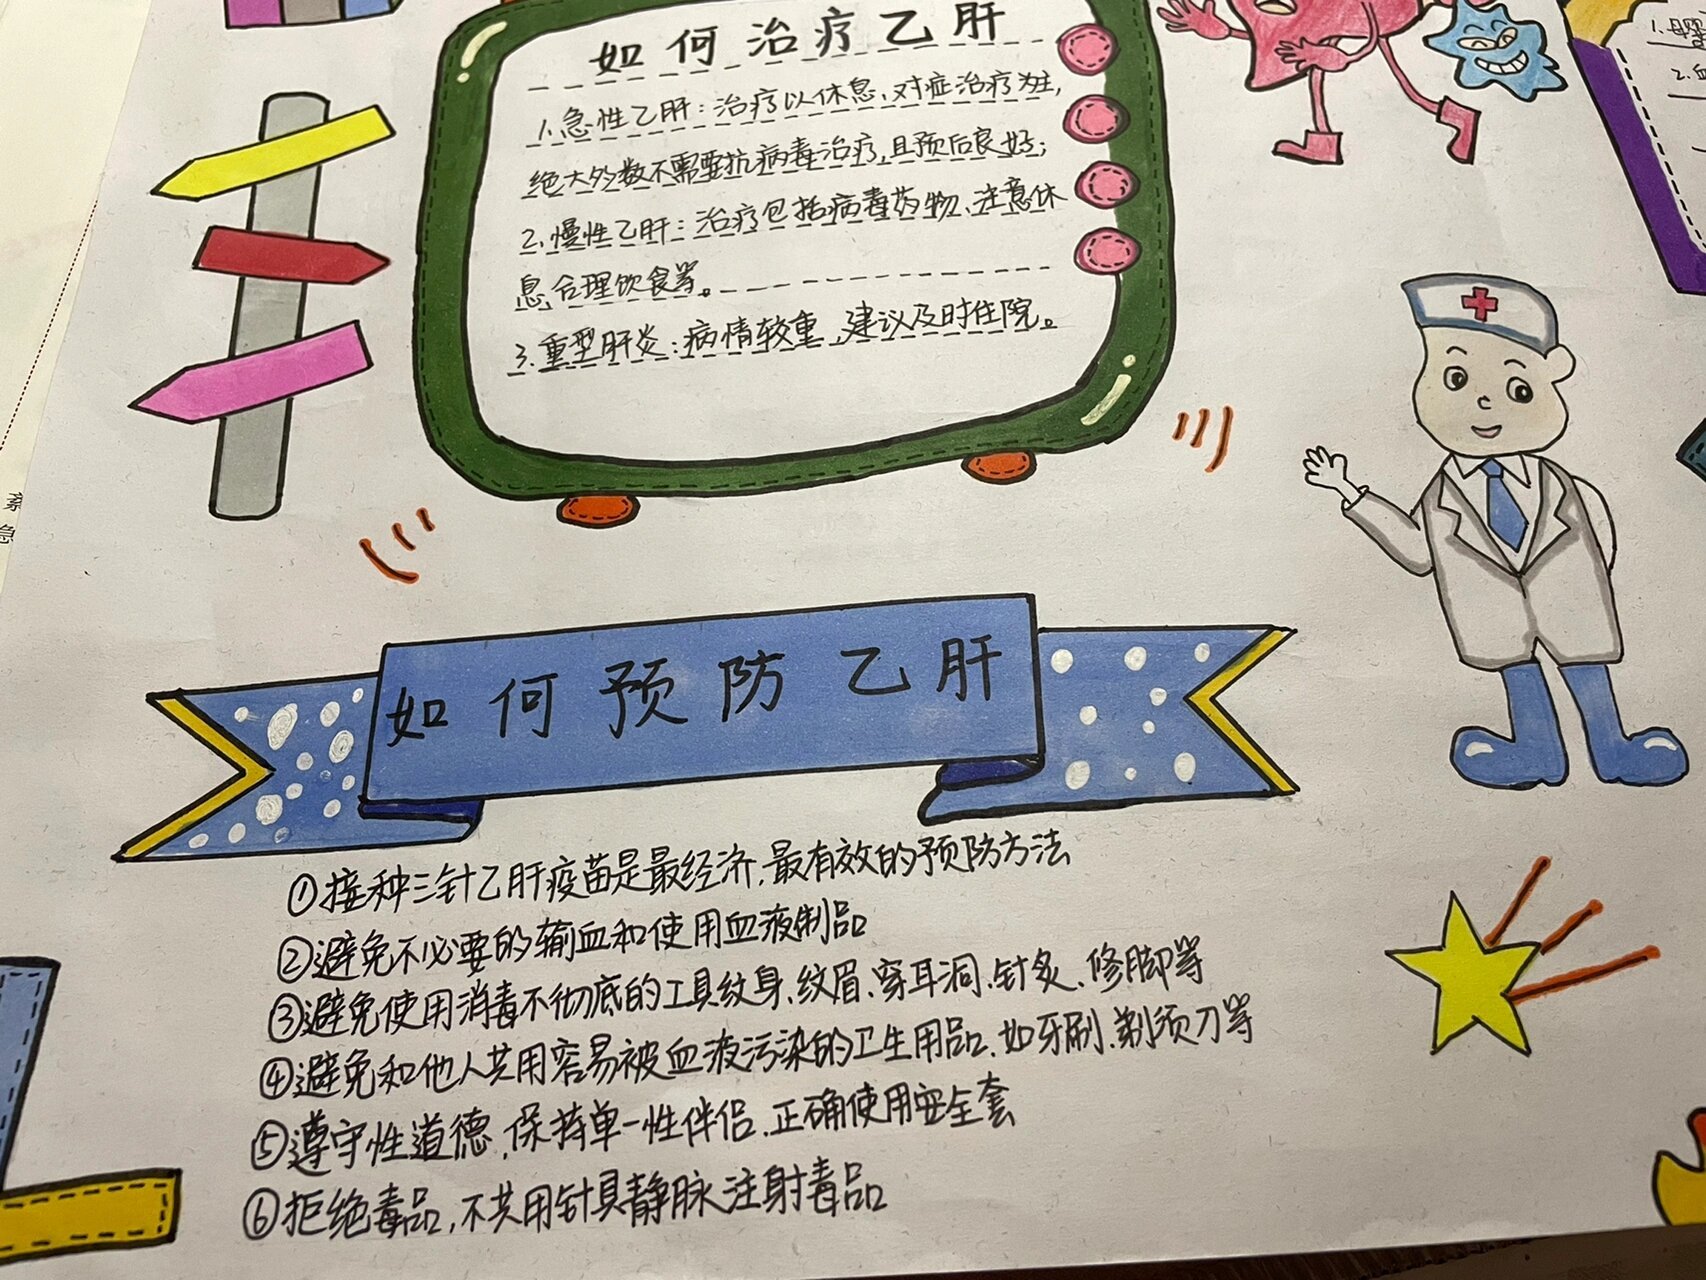 如何治疗乙肝
1.急性乙肝：治疗以休息、对症治疗为主，
绝大多数不需要抗病毒治疗，且预后良好；
2.慢性乙肝：治疗包括病毒药物、注意休
息、合理饮食等。
3.重型肝炎：病情较重，建议及时住院。
1.母婴
2.血
如何预防乙肝
①接种三针乙肝疫苗是最经济、最有效的预防方法
②避免不必要的输血和使用血液制品
③避免使用消毒不彻底的工具纹身、纹眉、穿耳洞、针灸、修脚等
④避免和他人共用容易被血液污染的卫生用品、如牙刷、剃须刀等
⑤遵守性道德，保持单一性伴侣、正确使用安全套
⑥拒绝毒品，不共用针具静脉注射毒品
急